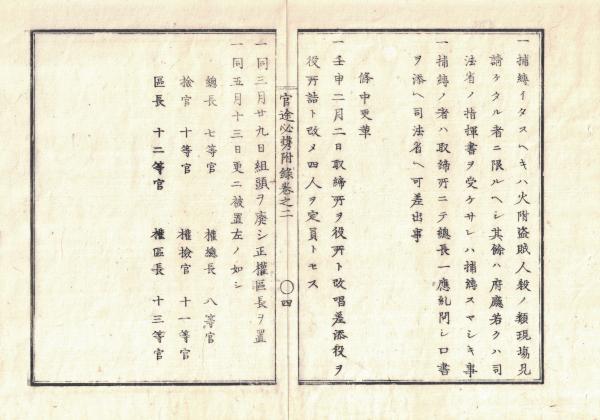 一捕縛イタスヘキハ火附盜賊人殺ノ類現場見
請ケタル者ニ限ルヘシ其餘ハ府廳若クハ司
法省ノ指揮書ヲ受ケサレハ捕縛スマシキ事
一捕縛ノ者ハ取締所ニテ總長一應糺問シ口書
ヲ添ヘ司法省ヘ可差出事
條中更革
一壬申二月二日取締所ヲ役所ト改唱差添役ヲ
役所詰ト改メ四人ヲ定員トセス
官途必携附錄卷之二
〇四
一同三月廿九日組頭ヲ廃シ正權區長ヲ置
一同五月十三日更ニ被置左ノ如シ
總長 七等官 權總長 八等官
檢官 十等官 權檢官 十一等官
區長 十二等官 權區長 十三等官